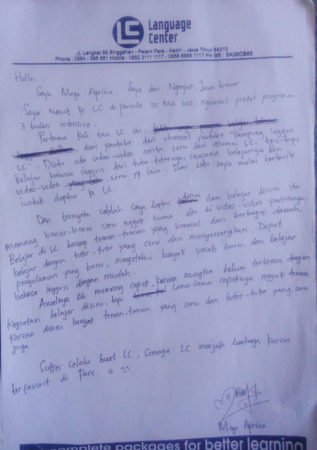 LC Language Center
Jl. Langkat 88 Singgahan - Pelem Pare - Kediri - Jawa Timur 64213
Hallo.
Saya Mega Aprilia. Saya dari Nganjuk - Jawa timur
Saya masuk ke LC di periode 25 Mei 2017. ngambil paket program
3 bulan intensive.
Pertama kali tau LC itu,
dari youtube dari channel youtube "Kampung Inggris
LC". Disitu ada video-video cerita seru dari alumni LC, tips-tips
belajar bahasa inggris dari tutor-tutornya, suasana belajarnya dan
video-video seru yg lain. Dari situ saya mulai tertarik
untuk daftar ke LC.
Dan ternyata setelah saya daftar dan belajar disini itu
memang bener-bener seru nggak cuma di video-video youtubenya.
Belajar di LC bareng teman-teman yang berasal dari berbagai daerah,
belajar dengan tutor-tutor yang seru dan menyenangkan. Dapat
pengalaman yang baru, mengetahui banyak vocab baru, dan belajar
bahasa Inggris dengan mudah.
Awalnya sih memang capek, karena mungkin belum terbiasa dengan
kegiatan belajar disini. tapi lama-lama capeknya nggak terasa
karena disini banyak teman-teman yang seru dan tutor-tutor yang seru
juga
Sukses selalu buat LC, Semoga LC menjadi lembaga kursus
terfavorit di Pare. ^^
Mega Aprilia
complete packages for better learning